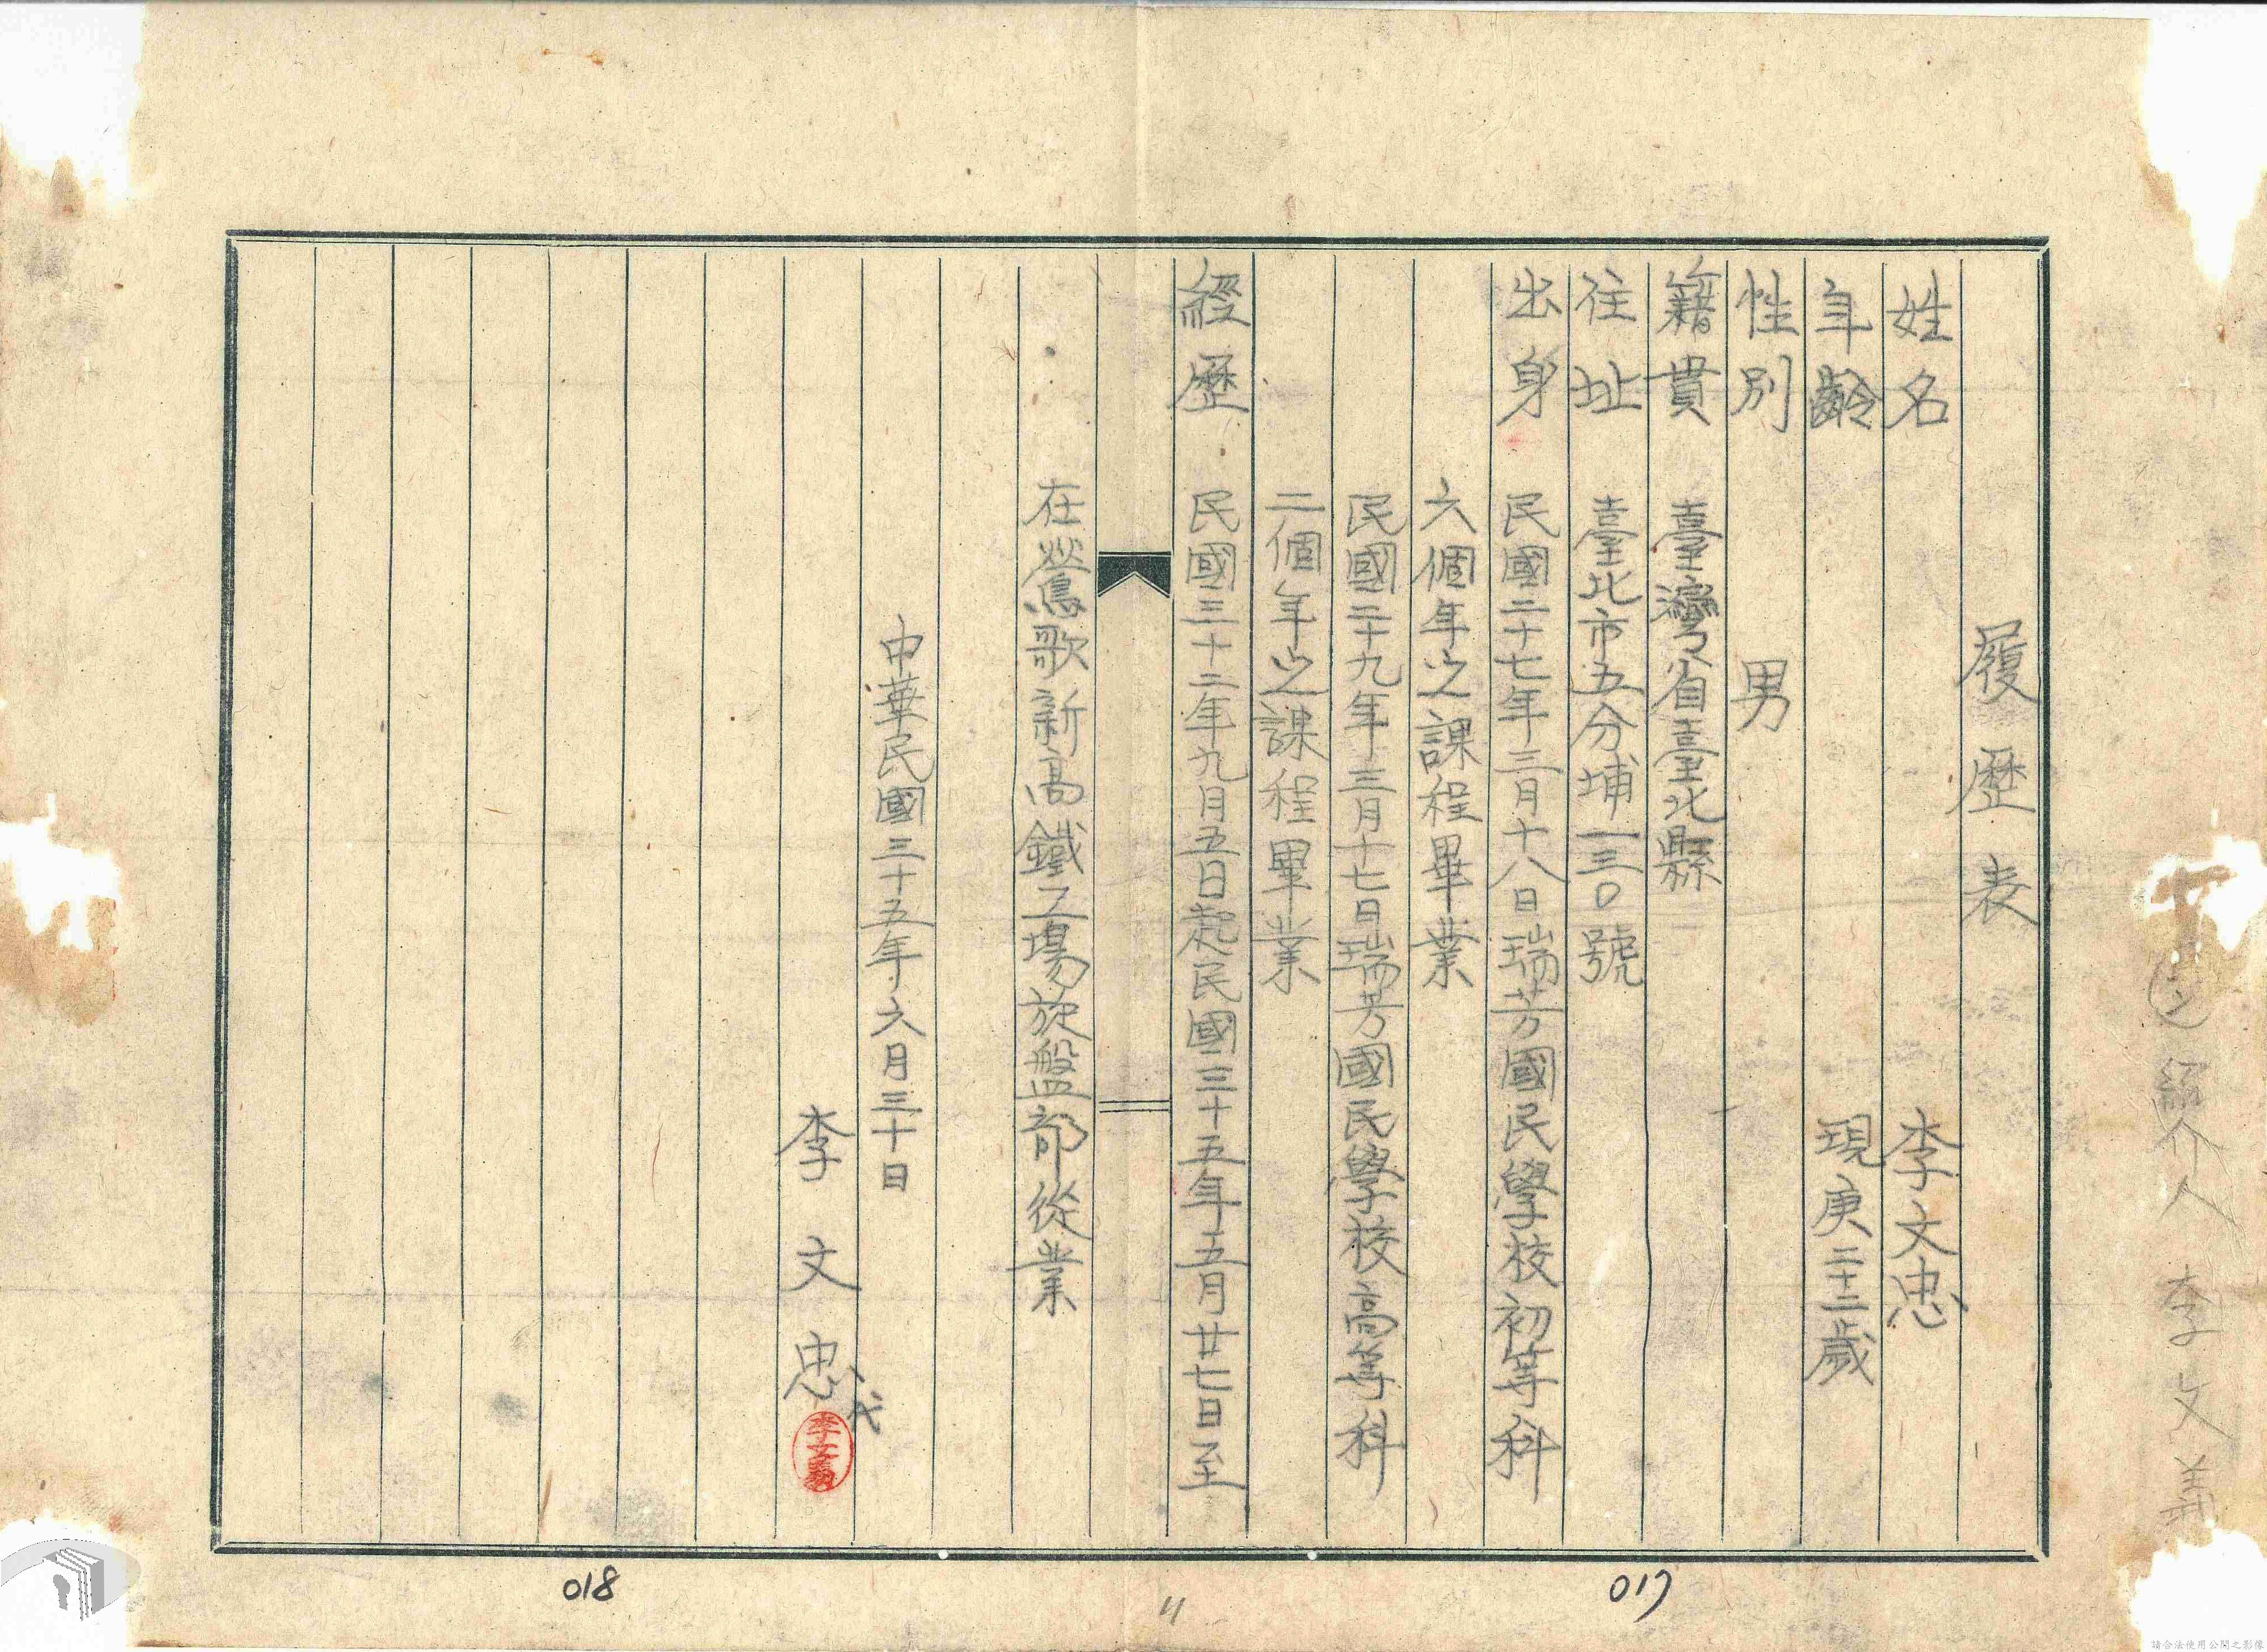 履歷表
姓名 李文忠
年齡 現庚二十二歲
性別 男
籍貫 臺灣省臺北縣
住址 臺北市五分埔一三〇號
出身 民國二十七年三月十八日瑞芳國民學校初等科
六個年之課程畢業
民國二十九年三月十七日瑞芳國民學校高等科
二個年之課程畢業
經歷 民國三十二年九月五日起民國三十五年五月廿七日至
在鶯歌新高鐵工場旋盤部從業
中華民國三十五年六月三十日
李文忠 代
紹介人 李文義
017
018
11
請合法使用公開之影像